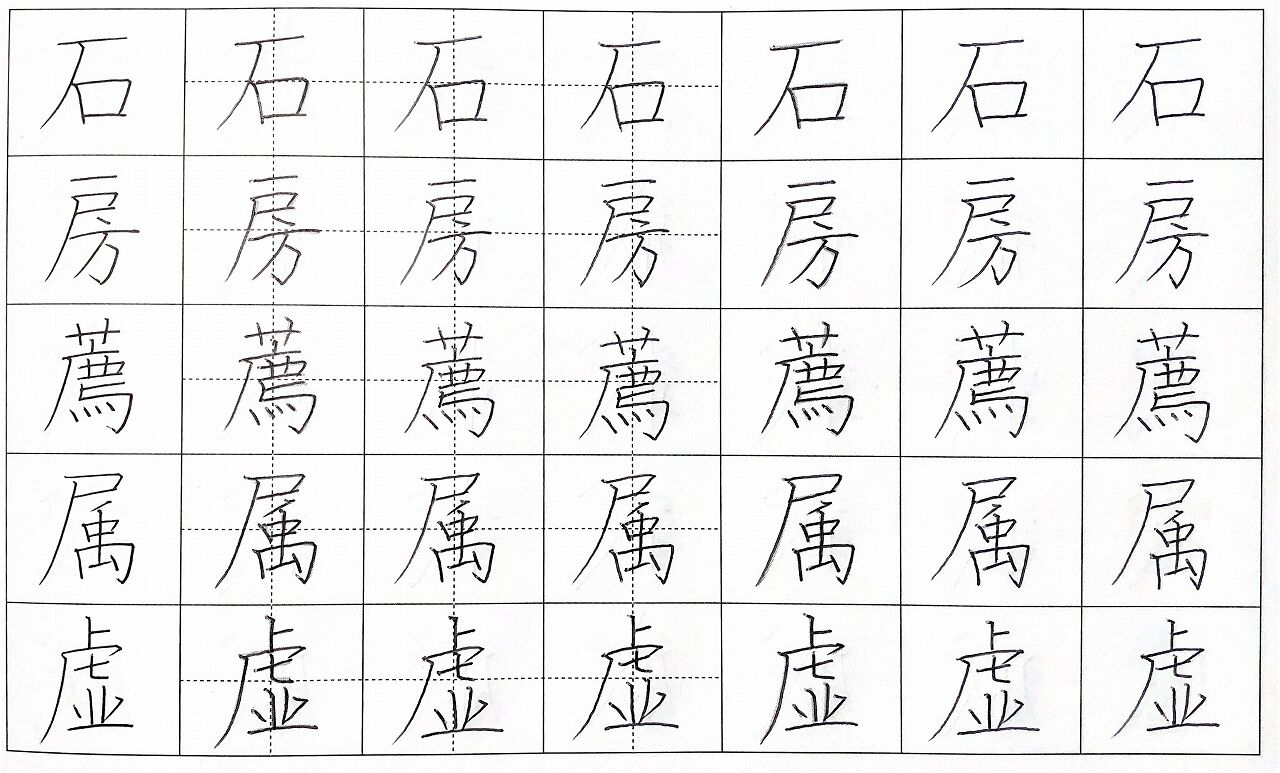 石石石石石石石
房房房房房房房
薦薦薦薦薦薦薦
属属属属属属属
虚虚虚虚虚虚虚